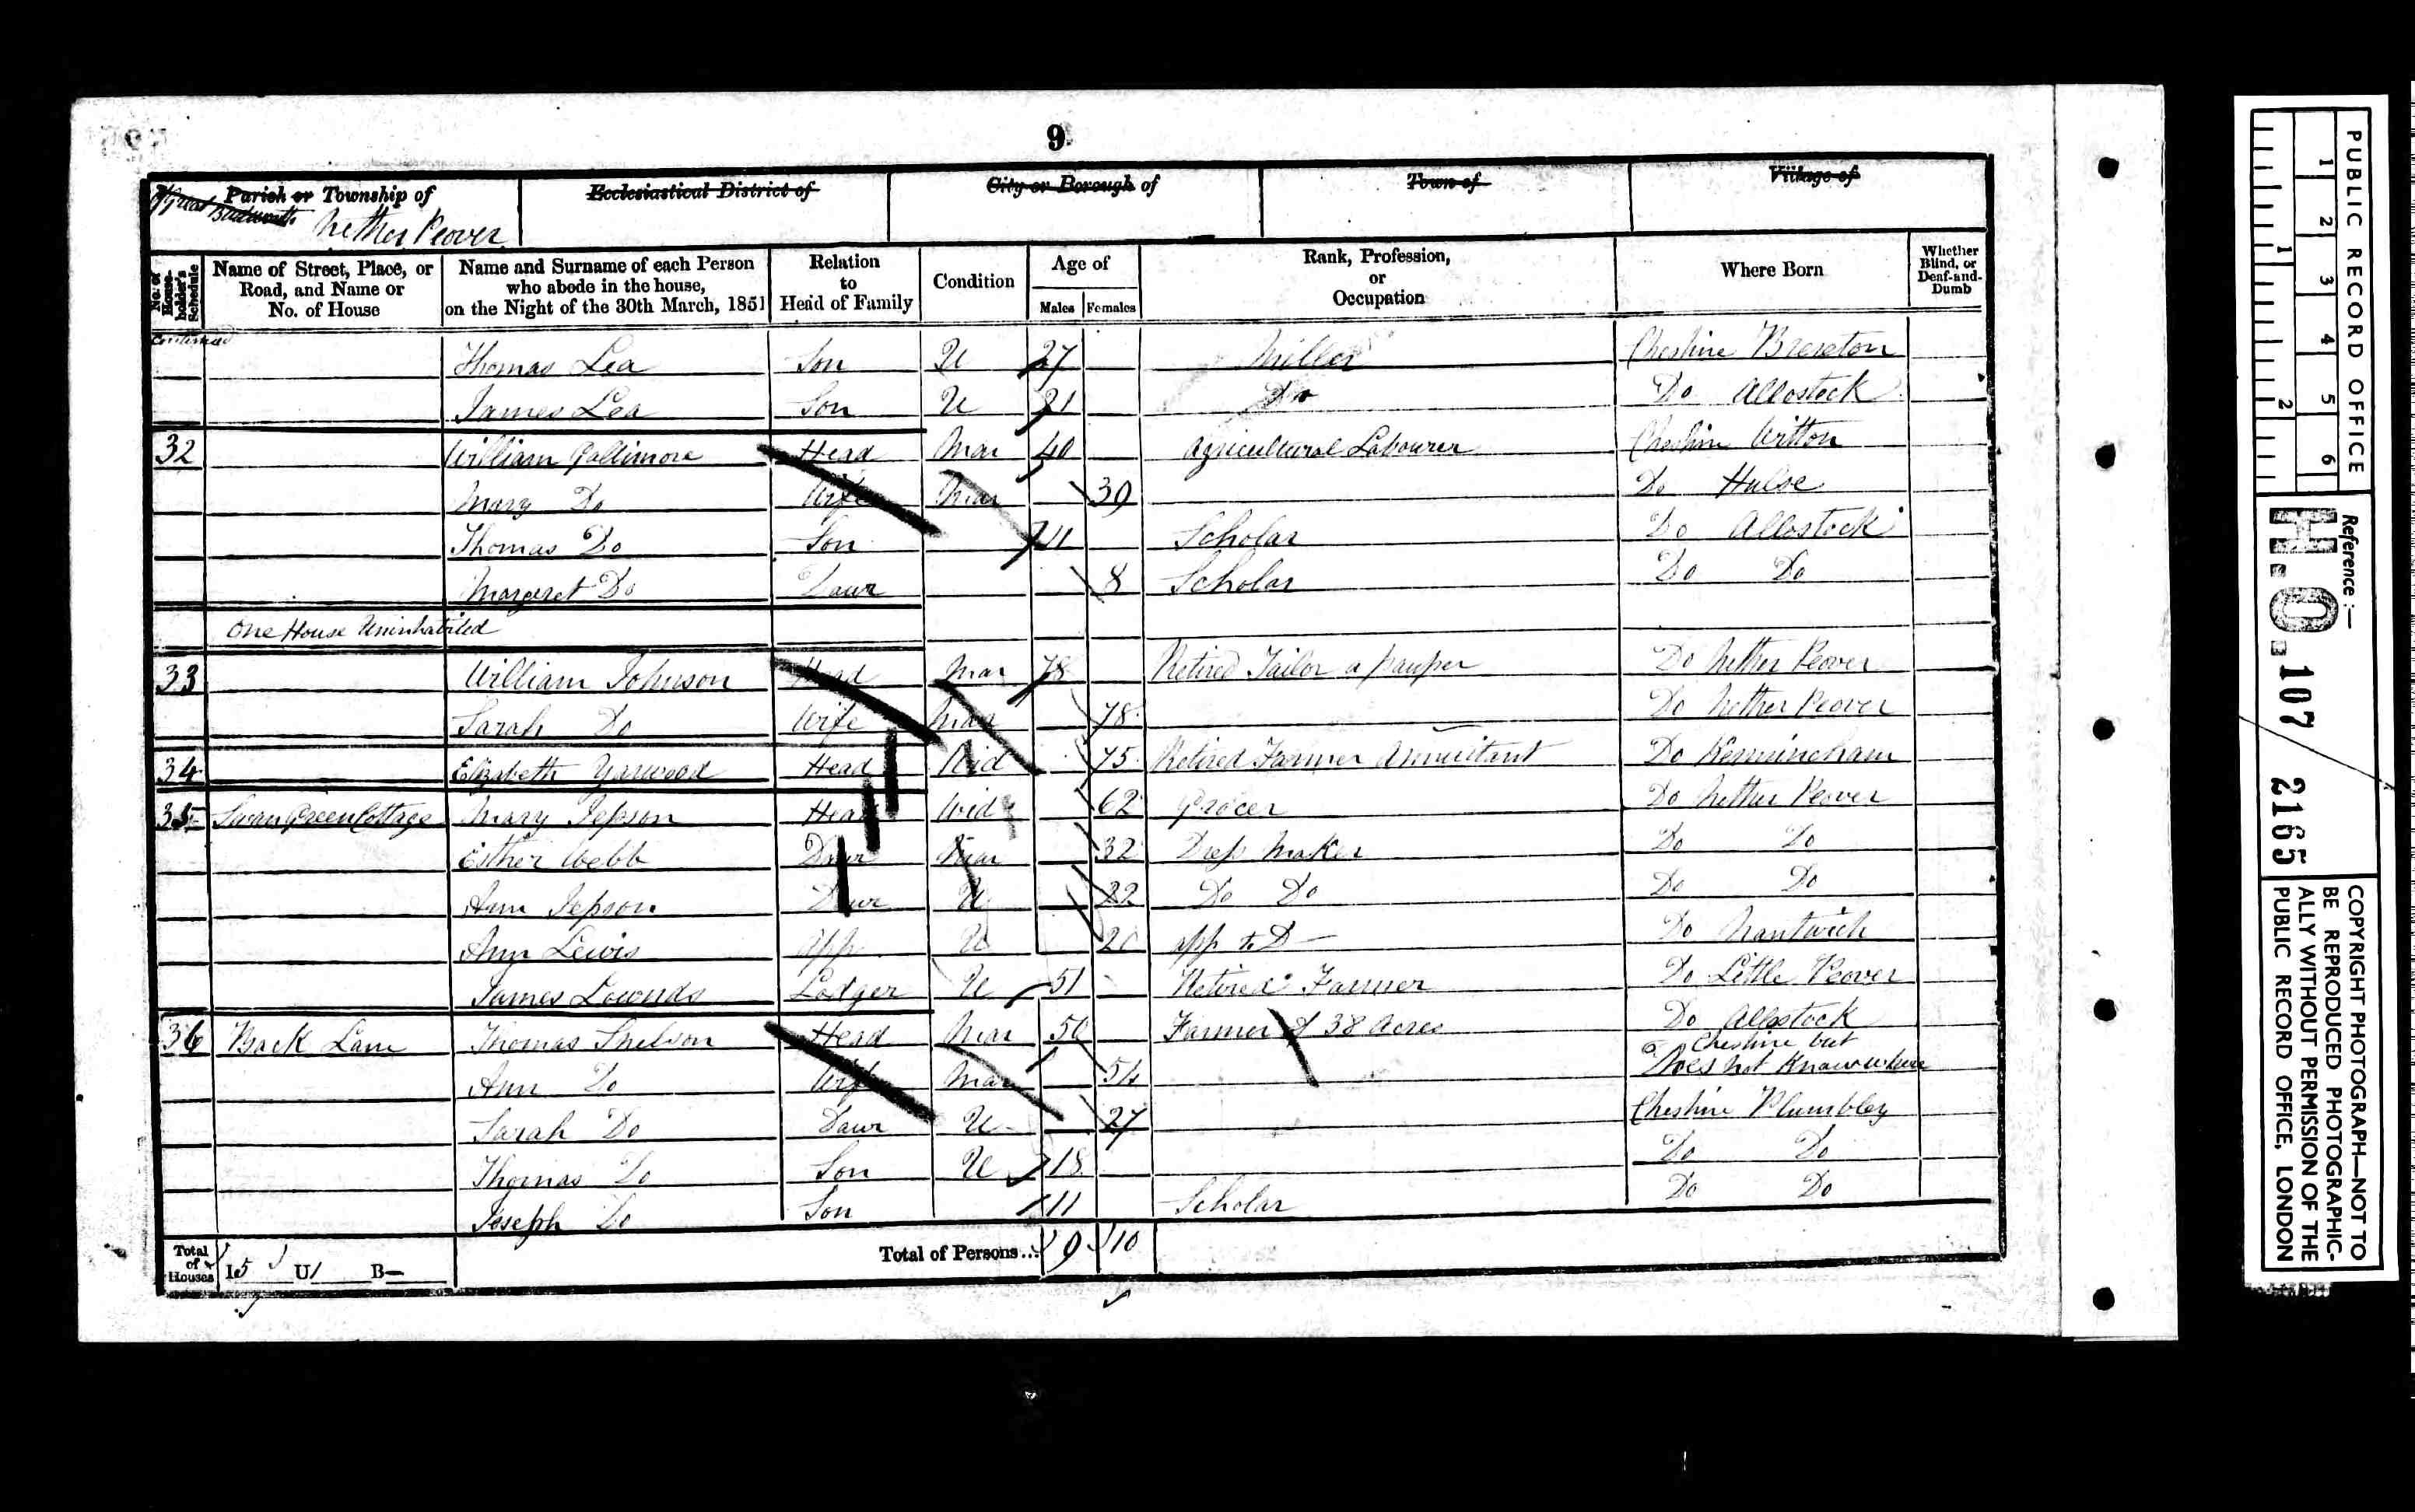 9
Parish or Township of
Nether Peover
Ecclesiastical District of
City or Borough of
Town of
Village of
No. of Householder's Schedule
Name of Street, Place, or Road, and Name or No. of House
Name and Surname of each Person who abode in the house, on the Night of the 30th March, 1851
Relation to Head of Family
Condition
Age of
Males Females
Rank, Profession, or Occupation
Where Born
Whether Blind, or Deaf-and-Dumb
continued
Thomas Lea Son U 27 Miller Cheshire Brereton
James Lea Son U 21 Do Do Allostock
32 William Gallimore Head Mar 40 Agricultural Labourer Cheshire Witton
Mary Do Wife Mar 39 Do Hulse
Thomas Do Son 11 Scholar Do Allostock
Margaret Do Daur 8 Scholar Do Do
One House Uninhabited
33 William Johnson Head Mar 78 Retired Tailor a pauper Do Nether Peover
Sarah Do Wife Mar 78 Do Nether Peover
34 Elizabeth Yarwood Head Wid 75 Retired Farmer Annuitant Do Kermincham
35 Swan Green Cottage Mary Jepson Head Wid 62 Grocer Do Nether Peover
Esther Webb Daur Mar 32 Dress Maker Do Do
Ann Jepson Daur U 22 Do Do Do Do
Ann Lewis App U 20 app to D Do Nantwich
James Lownds Lodger U 51 Retired Farmer Do Little Peover
36 Back Lane Thomas Snelson Head Mar 50 Farmer of 38 Acres Do Allostock
Ann Do Wife Mar 54 Cheshire but Does not Know where
Sarah Do Daur U 27 Cheshire Plumbley
Thomas Do Son U 18 Do Do
Joseph Do Son 11 Scholar Do Do
Total of Houses I 5 U 1 B —
Total of Persons... 9 10
PUBLIC RECORD OFFICE
1 2 3 4 5 6
1 2
Reference :—
H.O. 107 / 2165
COPYRIGHT PHOTOGRAPH—NOT TO
BE REPRODUCED PHOTOGRAPHIC-
ALLY WITHOUT PERMISSION OF THE
PUBLIC RECORD OFFICE, LONDON